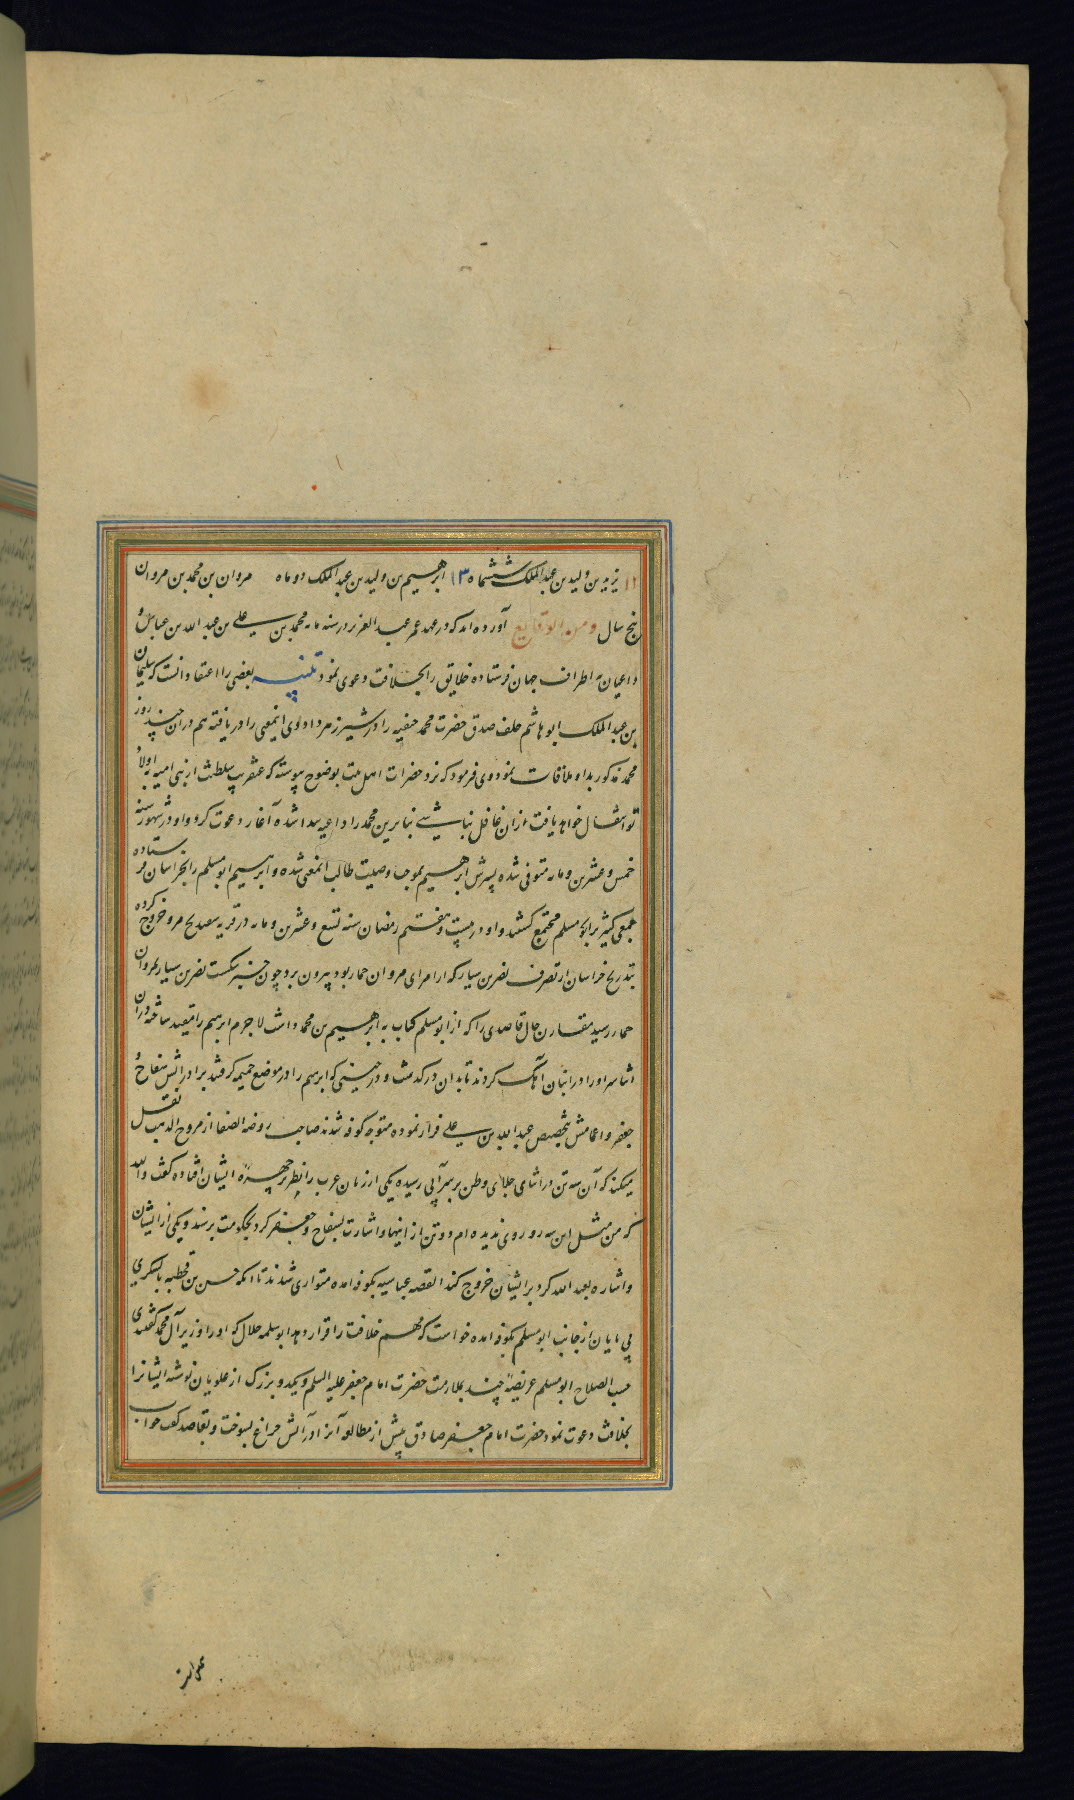 ۱۲ یزید بن ولید بن عبدالملک ششماه ۱۳ ابرهیم بن ولید بن عبدالملک دو ماه مروان بن محمد بن مروان
پنج سال ومن الوقایع آورده اند که در عهد عمر عبدالعزیز در سنه مایه محمد بن علی بن عبدالله بن عباس و
داعیان به اطراف جهان فرستاده خلایق را بخلافت دعوی نمود بعضی را اعتقاد آنست که سلیمان
بن عبدالملک ابو هاشم خلف صدق حضرت محمد حنفیه را در شیر زهر داد و وی اینمعنی را دریافته هم در آن چند روز
محمد مذکور بدو ملاقات نمود وی فرمود که نزد حضرات اهل بیت بوضوح پیوسته که عنقریب سلطنت از بنی امیه به اولاد
تو انتقال خواهد یافت ازان غافل نباشی بنابرین محمد را داعیه پیدا شده آغاز دعوت کرد و او در شهور سنه
خمس و عشرین و مایه متوفی شده پسرش ابرهیم بموجب وصیت طالب اینمعنی شده و ابرهیم ابو مسلم را بخراسان فرستاده
جمعی کثیر بر ابو مسلم مجتمع کشتند و او در بیست و هفتم رمضان سنه تسع و عشرین و مایه در قریه مرو خروج کرده
بتدریج خراسان از تصرف نصر بن سیار که از امرای مروان حمار بود بیرون برد چون خبر شکست نصر بن سیار بمروان
حمار رسید مقارن حال قاصدی را که از ابو مسلم کتاب به ابرهیم بن محمد داشت لاجرم ابرهیم را مقید ساخته در آن
اثنا سر او را در انبان آهک کردند تا بدان درکذشت و در حینی که ابرهیم را در موضع حمیمه کرفتند برادرانش سفاح و
جعفر و اعمامش بتخصیص عبدالله بن علی فرار نموده متوجه کوفه شدند صاحب روضه الصفا از مروج الذهب نقل
میکند که آن سه تن در اثنای جلای وطن بر سر آبی رسیده یکی از زنان عرب را نظر بر چهره ایشان افتاده کفت والله
که من مثل این سه رو روی ندیده ام دو تن از اینها و اشارت بسفاح و جعفر کرد بحکومت برسند و یکی از ایشان
و اشاره بعبد الله کرد بر ایشان خروج کند القصه عباسیه بکوفه آمده متواری شدند تا آنکه حسن بن قحطبه با لشکری
بی پایان از جانب ابو مسلم بکوفه آمده خواست که مهم خلافت را قرار دهد ابو سلمه خلال که او را وزیر آل محمد کفتندی
حسب الصلاح ابو مسلم عریضهٔ چند بملازمت حضرت امام جعفر علیه السلم و یکدو بزرک از علویان نوشته ایشانرا
بخلافت دعوت نمود حضرت امام جعفر صادق پیش از مطالعه آنرا در آتش چراغ بسوخت و بقاصد کفت جواب